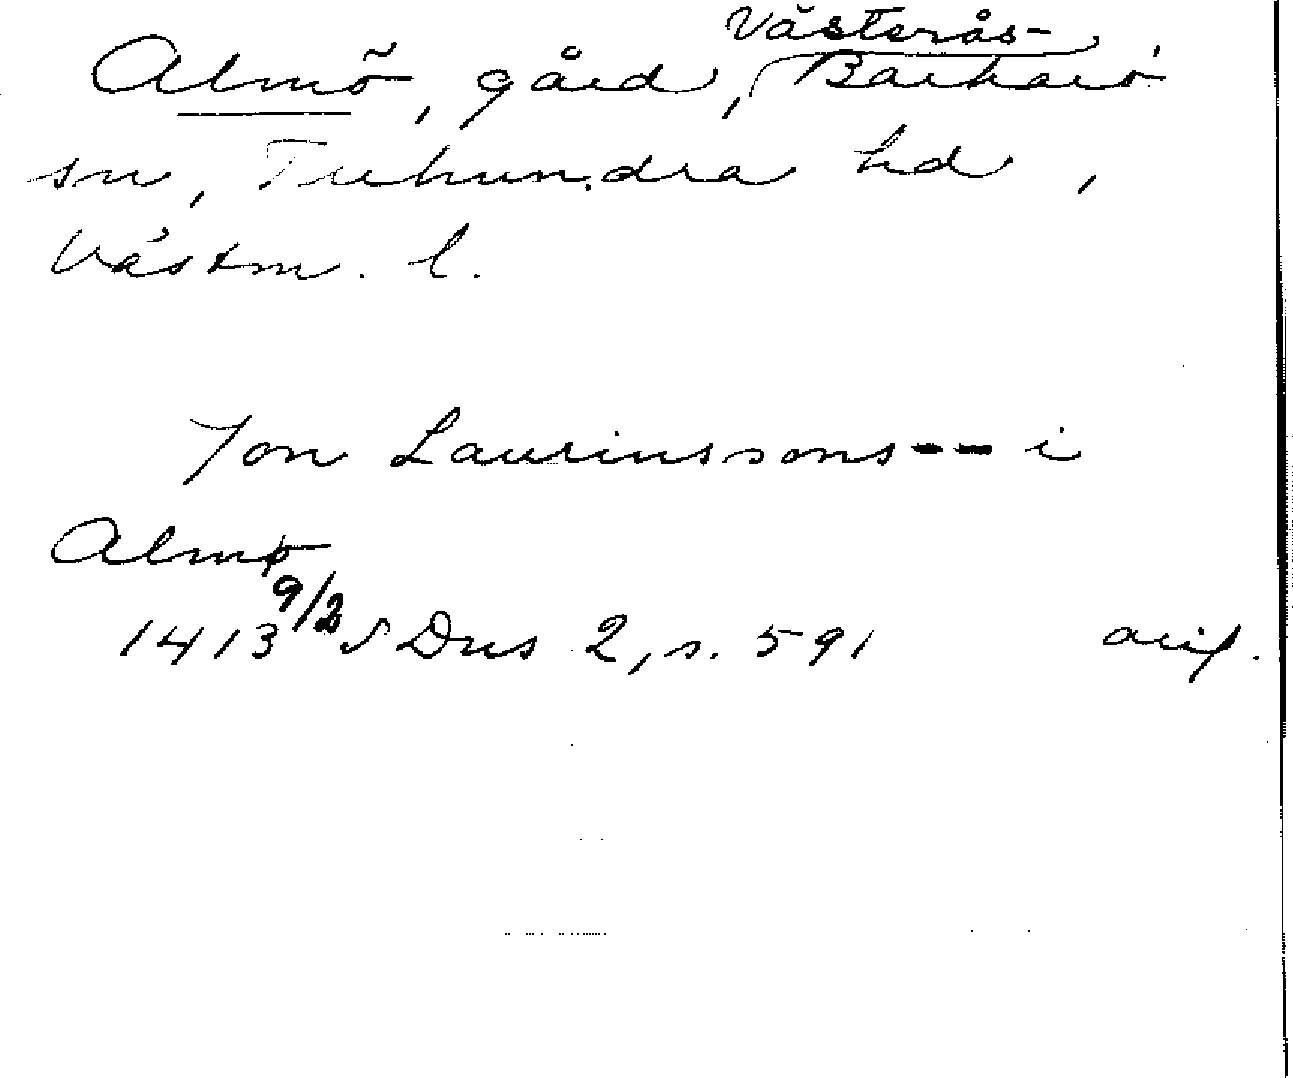 Almö, gård, Västerås-Barkarö
sn, Tuhundra hd,
Västm. l.
Jon Laurinssons -- i
Almø
1413 9/2 SDns 2, s. 591 avs.